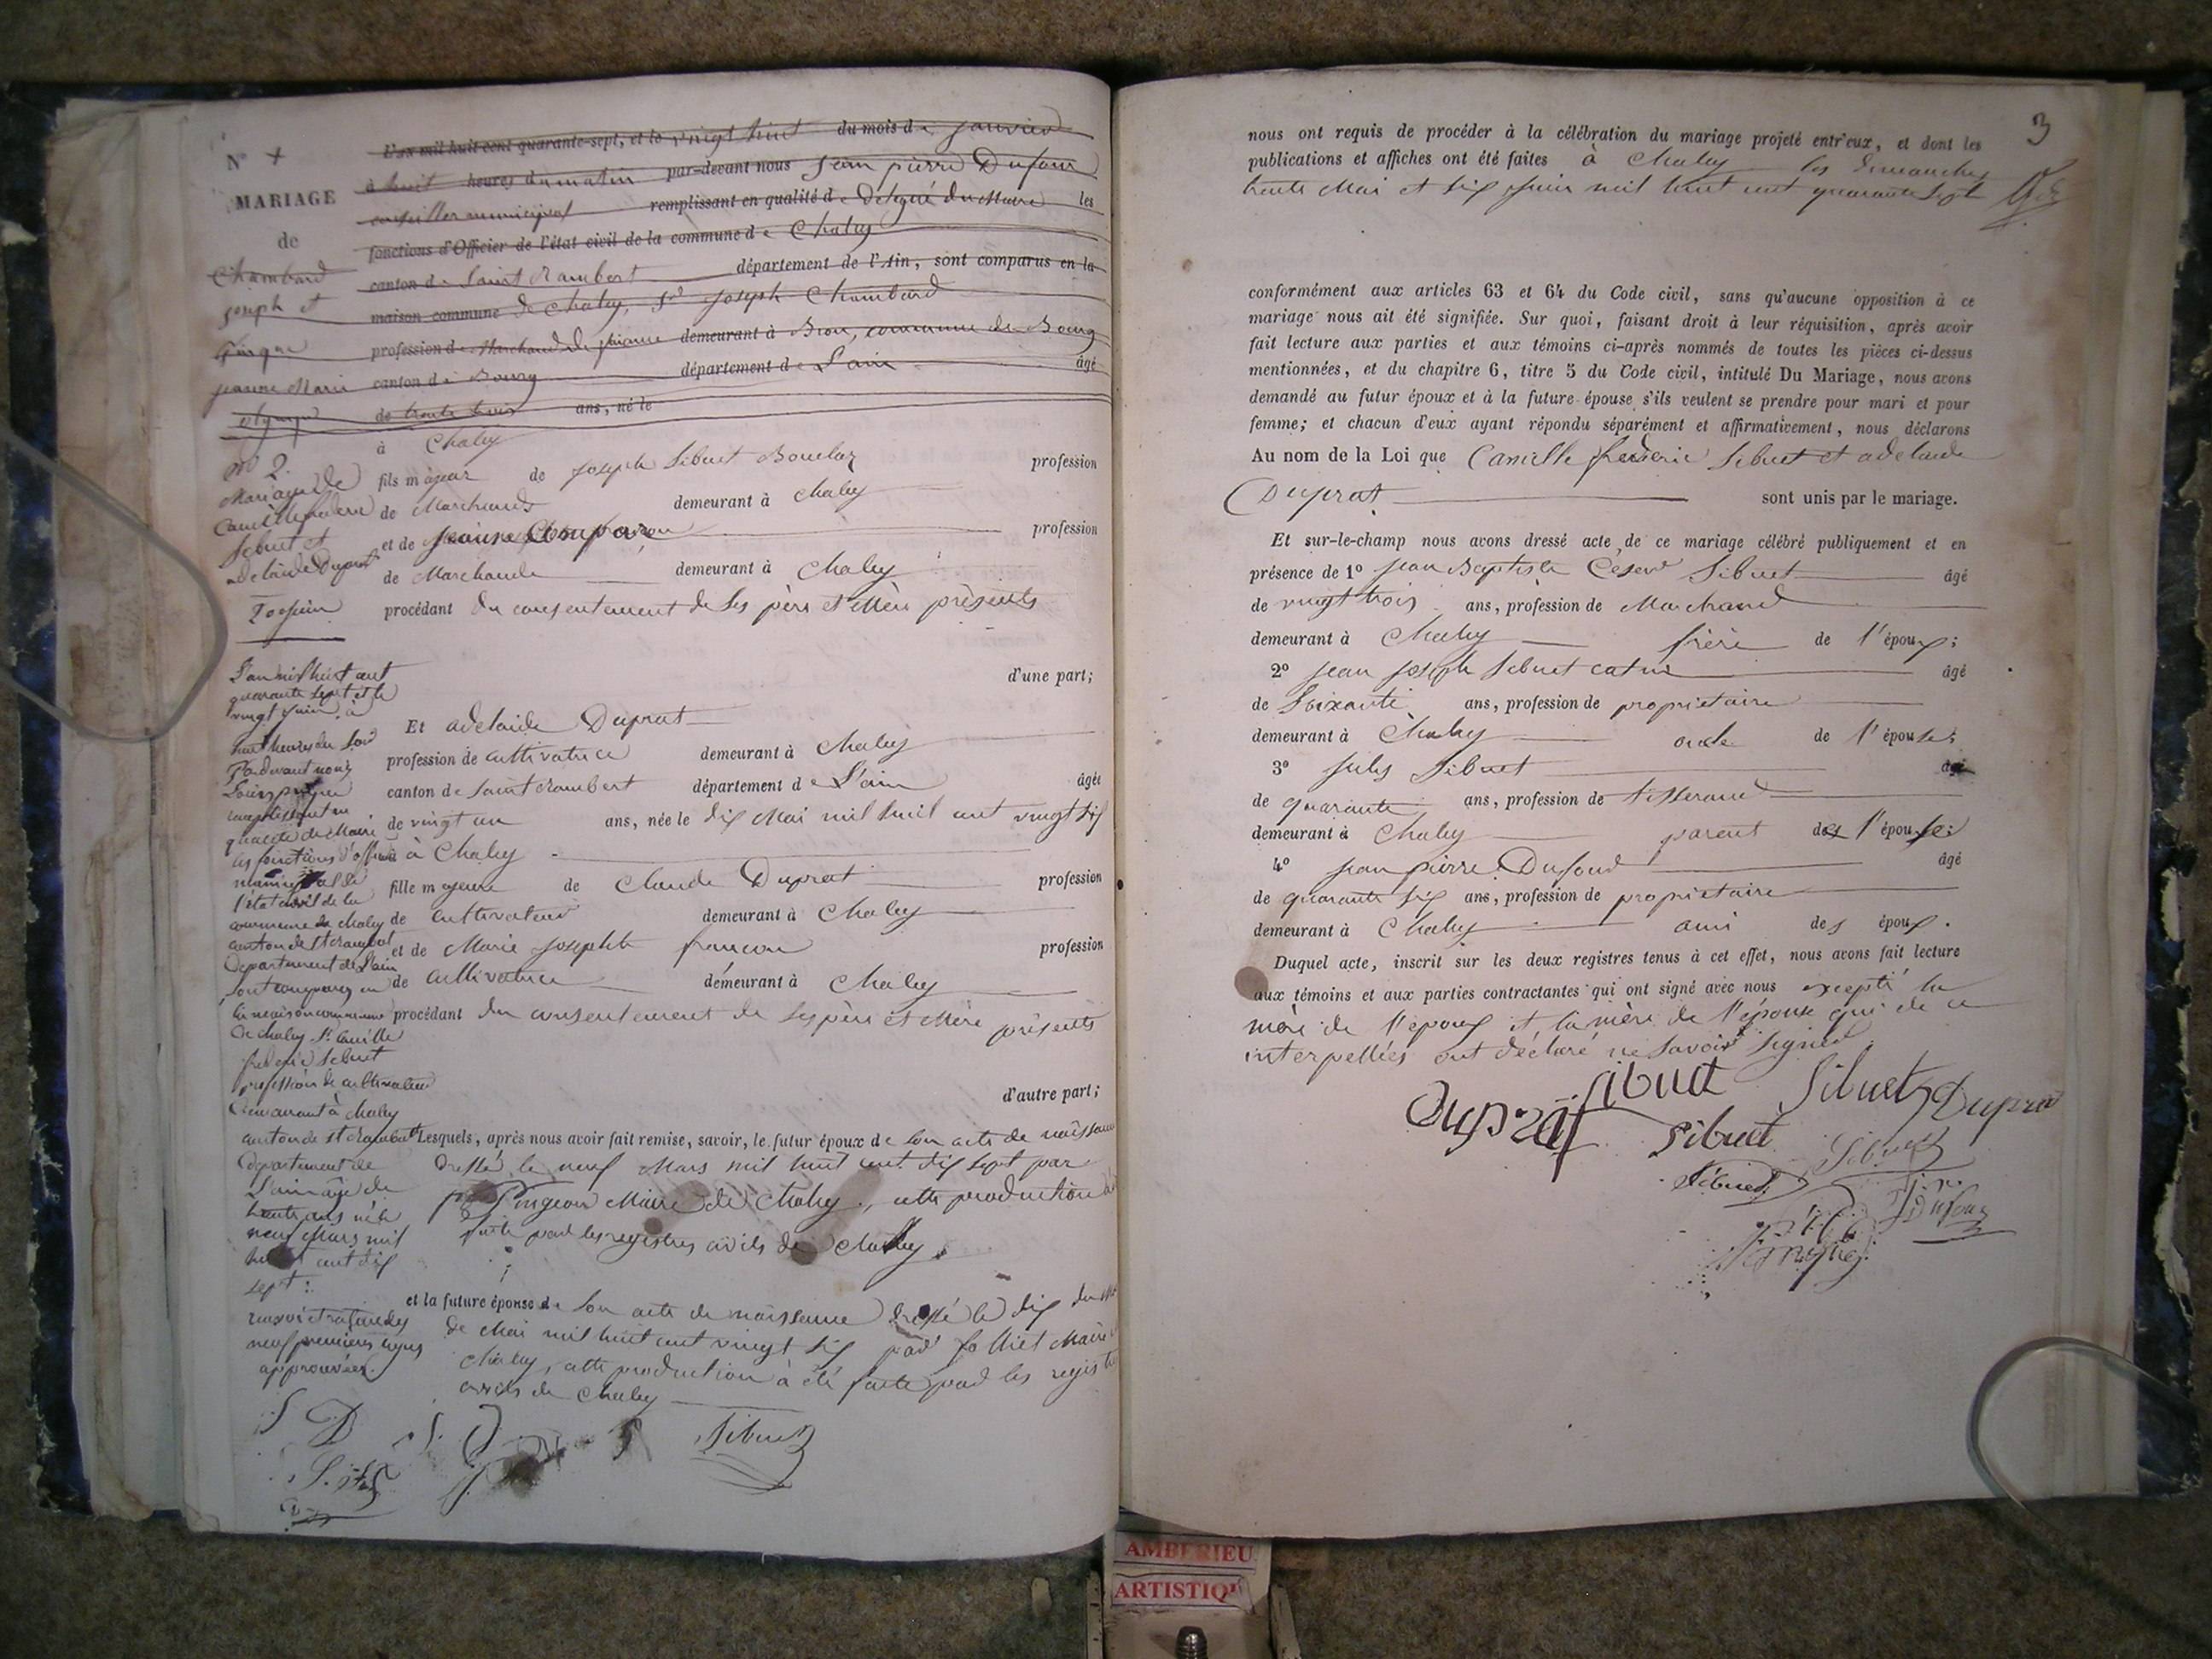 N° +
MARIAGE
de
Chambard
joseph et
jeanne Marie
N° 2.
Mariage de
Camille frederic
Sibuet et
adelaide Duprat
20 juin
L'an mil huit cent
quarante sept et le
vingt juin, à
huit heures du soir
Pardevant nous
remplissant en
qualité de Maire
les fonctions d'officier
municipal de
l'état civil de la
commune de Chaley
canton de St rambert
Departement de L'ain
sont comparus en
la maison commune
de Chaley Sr Camille
frederic Sibuet
profession de cultivateur
demeurant à Chaley
canton de St rambert
département de
L'ain âgé de
trente ans né le
neuf Mars mil
huit cent dix
sept :
renvoi et rature des
neuf premières lignes
approuvées
L'an mil huit cent quarante-sept, et le vingt huit du mois de janvier
à huit heures du matin par-devant nous Jean pierre Dufour
conseiller municipal remplissant en qualité de délégué du Maire les
fonctions d'Officier de l'état civil de la commune de Chaley
canton de Saint Rambert département de l'Ain, sont comparus en la
maison commune de Chaley, Sr joseph Chambard
profession de Marchand de faiance demeurant à Brou, commune de Bourg
canton de Bourg département de L'ain âgé
de trente trois ans, né le
à Chaley
fils majeur de Joseph Sibuet Bouclaz profession
de Marchand demeurant à Chaley
et de profession
de Marchande demeurant à Chaley
procédant du consentement de ses père et Mère présents
d'une part;
Et adelaide Duprat
profession de cultivatrice demeurant à Chaley
canton de Saint Rambert département de L'ain âgée
de vingt un ans, née le dix Mai mil huit cent vingt six
à Chaley
fille majeure de Claude Duprat profession
de cultivateur demeurant à Chaley
et de Marie Josephte francon profession
de cultivatrice demeurant à Chaley
procédant du consentement de ses père et Mère présents
d'autre part;
Lesquels, après nous avoir fait remise, savoir, le futur époux de son acte de naissance
dressé le neuf Mars mil huit cent dix sept par
Pingeon Maire de Chaley, cette production a
faite par les registres civils de Chaley.
et la future épouse de son acte de naissance dressé le dix du
de Mai mil huit cent vingt six par folliet Maire
Chaley, cette production à été faite par les regist
civils de Chaley
Sibuet
3
nous ont requis de procéder à la célébration du mariage projeté entr'eux, et dont les
publications et affiches ont été faites à Chaley les dimanches
trente Mai et six juin mil huit cent quarante sept
conformément aux articles 63 et 64 du Code civil, sans qu'aucune opposition à ce
mariage nous ait été signifiée. Sur quoi, faisant droit à leur réquisition, après avoir
fait lecture aux parties et aux témoins ci-après nommés de toutes les pièces ci-dessus
mentionnées, et du chapitre 6, titre 5 du Code civil, intitulé Du Mariage, nous avons
demandé au futur époux et à la future épouse s'ils veulent se prendre pour mari et pour
femme; et chacun d'eux ayant répondu séparément et affirmativement, nous déclarons
Au nom de la Loi que Camille frederic Sibuet et adelaide
Duprat sont unis par le mariage.
Et sur-le-champ nous avons dressé acte de ce mariage célébré publiquement et en
présence de 1° Jean Baptiste Cesard Sibuet âgé
de vingt trois ans, profession de Marchand
demeurant à Chaley frère de l'époux;
2° Jean Joseph Sibuet âgé
de Soixante ans, profession de propriétaire
demeurant à Chaley oncle de l'épouse;
3° Jules Sibuet âgé
de quarante ans, profession de tisserand
demeurant à Chaley parent de l'épouse;
4° Jean pierre Dufour âgé
de quarante six ans, profession de propriétaire
demeurant à Chaley ami des époux.
Duquel acte, inscrit sur les deux registres tenus à cet effet, nous avons fait lecture
aux témoins et aux parties contractantes qui ont signé avec nous excepté la
mère de l'époux et la mère de l'épouse qui de ce
interpellées ont déclaré ne savoir signer.
Sibuet Sibuet Duprat
Duprat Sibuet Sibuet
Sibuet
Dufour
AMBERIEU
ARTISTIQU